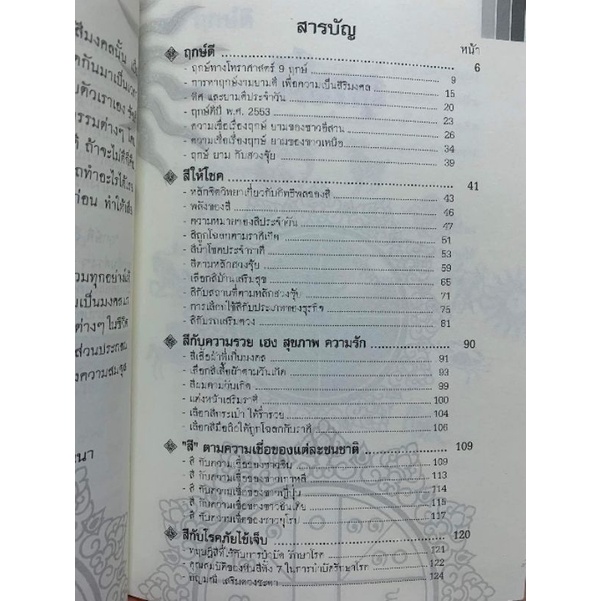 สีมงคลนั้น
สารบัญ
หน้า
ฤกษ์ดี 6
- ฤกษ์ทางโหราศาสตร์ 9 ฤกษ์ 9
- การหาฤกษ์งามยามดี เพื่อความเป็นสิริมงคล 15
- ทิศ และยามดีประจำวัน 20
- ฤกษ์ดีปี พ.ศ. 2553 23
- ความเชื่อเรื่องฤกษ์ ยามของชาวอีสาน 26
- ความเชื่อเรื่องฤกษ์ ยามของชาวเหนือ 34
- ฤกษ์ ยาม กับฮวงจุ้ย 39
สีให้โชค 41
- หลักจิตวิทยาเกี่ยวกับอิทธิพลของสี 43
- พลังของสี 46
- ความหมายของสีประจำวัน 47
- สีถูกโฉลกตามราศีเกิด 51
- สีนำโชคประจำราศี 53
- สีตามหลักฮวงจุ้ย 59
- เลือกสีบ้านเสริมสุข 65
- สีกับสถานที่ตามหลักฮวงจุ้ย 71
- การเลือกใช้สีกับประเภทของธุรกิจ 75
- สีกับรถเสริมดวง 81
สีกับความรวย เฮง สุขภาพ ความรัก 90
- สีเสื้อผ้าที่เป็นมงคล 91
- เลือกสีเสื้อผ้าตามวันเกิด 93
- สีผมตามวันเกิด 99
- แต่งหน้าเสริมราศี 100
- เลือกสีกระเป๋า ได้ร่ำรวย 104
- เลือกสีมือถือให้ถูกโฉลกกับราศี 106
"สี" ตามความเชื่อของแต่ละชนชาติ 109
- สี กับความเชื่อของชาวจีน 109
- สี กับความเชื่อของชาวเกาหลี 113
- สี กับความเชื่อของชาวญี่ปุ่น 114
- สี กับความเชื่อของชาวอินเดีย 115
- สี กับความเชื่อของชาวยุโรป 117
สีกับโรคภัยไข้เจ็บ 120
- ทฤษฎีสีที่ใช้กับการบำบัด รักษาโรค 121
- คุณสมบัติของทั้งสีทั้ง 7 ในการบำบัดรักษาโรค 122
- อัญมณี เสริมดวงชะตา 124